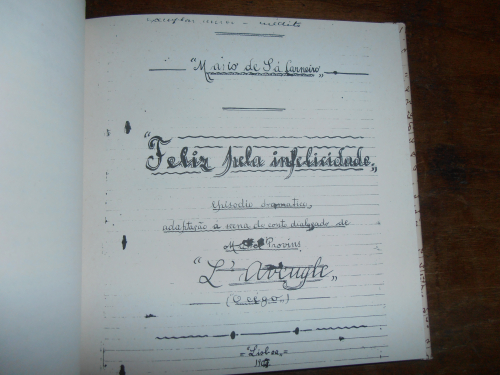 "Mario de Sá Carneiro"
"Feliz pela infelicidade"
episodio dramatico,
adaptação a scena do conto dialogado de
Michel Provins
"L'Aveugle"
(O cego)
= Lisboa =